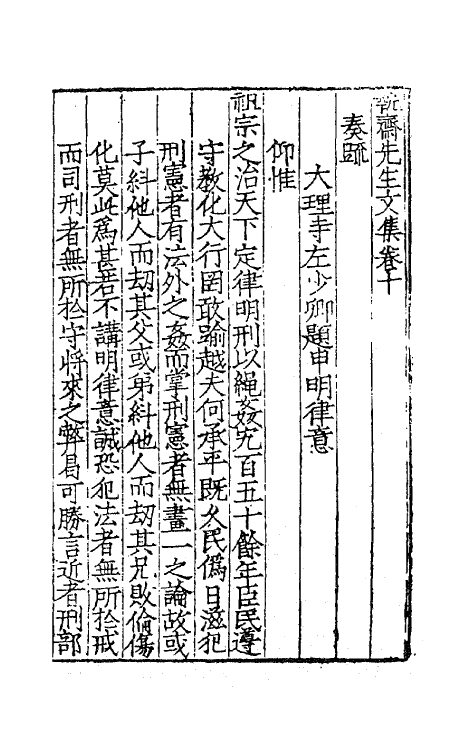 齋先生文集卷十
奏疏
大理寺左少卿題申明律意
仰惟
祖宗之治天下定律明刑以繩姦宄百五十餘年臣民遵
守教化大行罔敢踰越夫何承平既久民僞日滋犯
刑憲者有法外之姦而掌刑憲者無畫一之論故或
子糾他人而刧其父或弟糾他人而刧其兄敗倫傷
化莫此爲甚若不講明律意誠恐犯法者無所扵戒
而司刑者無所扵守將來之弊曷可勝言近者刑部